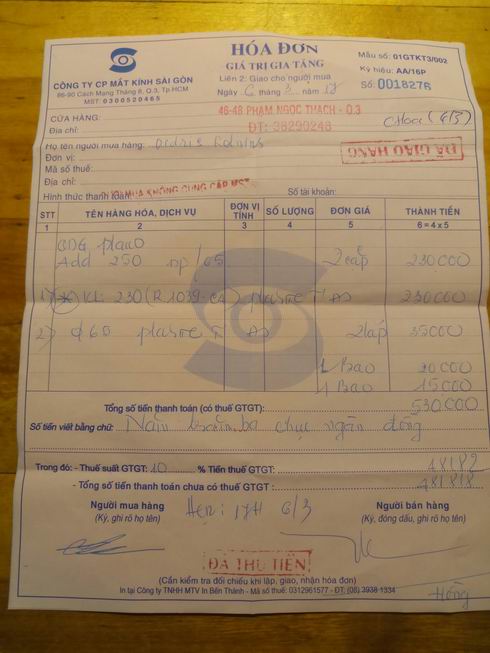 HÓA ĐƠN
GIÁ TRỊ GIA TĂNG
Liên 2: Giao cho người mua
Ngày 6 tháng 3 năm 17
Mẫu số: 01GTKT3/002
Ký hiệu: AA/16P
Số: 0018276
CÔNG TY CP MẮT KÍNH SÀI GÒN
86-90 Cách Mạng Tháng 8, Q.3, Tp.HCM
MST: 0300520465
CỬA HÀNG:
46-48 PHẠM NGỌC THẠCH - Q.3
Địa chỉ:
ĐT: 38290248
(6/3)
Họ tên người mua hàng:
ĐÃ GIAO HÀNG
Đơn vị:
Mã số thuế:
Địa chỉ:
Hình thức thanh toán:
MUA KHÔNG CUNG CẤP MST
Số tài khoản:
STT TÊN HÀNG HÓA, DỊCH VỤ ĐƠN VỊ TÍNH SỐ LƯỢNG ĐƠN GIÁ THÀNH TIỀN
1 2 3 4 5 6 = 4 x 5
Add 250 230000
1) KL 230 230000
2) 35000
1 Bao 20000
1 Bao 15000
Tổng số tiền thanh toán (có thuế GTGT): 530000
Số tiền viết bằng chữ: Năm trăm ba chục ngàn đồng
Trong đó: - Thuế suất GTGT: 10 % Tiền thuế GTGT: 48182
- Tổng số tiền thanh toán chưa có thuế GTGT: 481818
Người mua hàng
Hẹn: 17H 6/3
Người bán hàng
(Ký, ghi rõ họ tên)
(Ký, đóng dấu, ghi rõ họ tên)
ĐÃ THU TIỀN
(Cần kiểm tra đối chiếu khi lập, giao, nhận hóa đơn)
In tại Công ty TNHH MTV In Bến Thành - Mã số thuế: 0312961577 - ĐT: (08) 3938 1334
Hồng